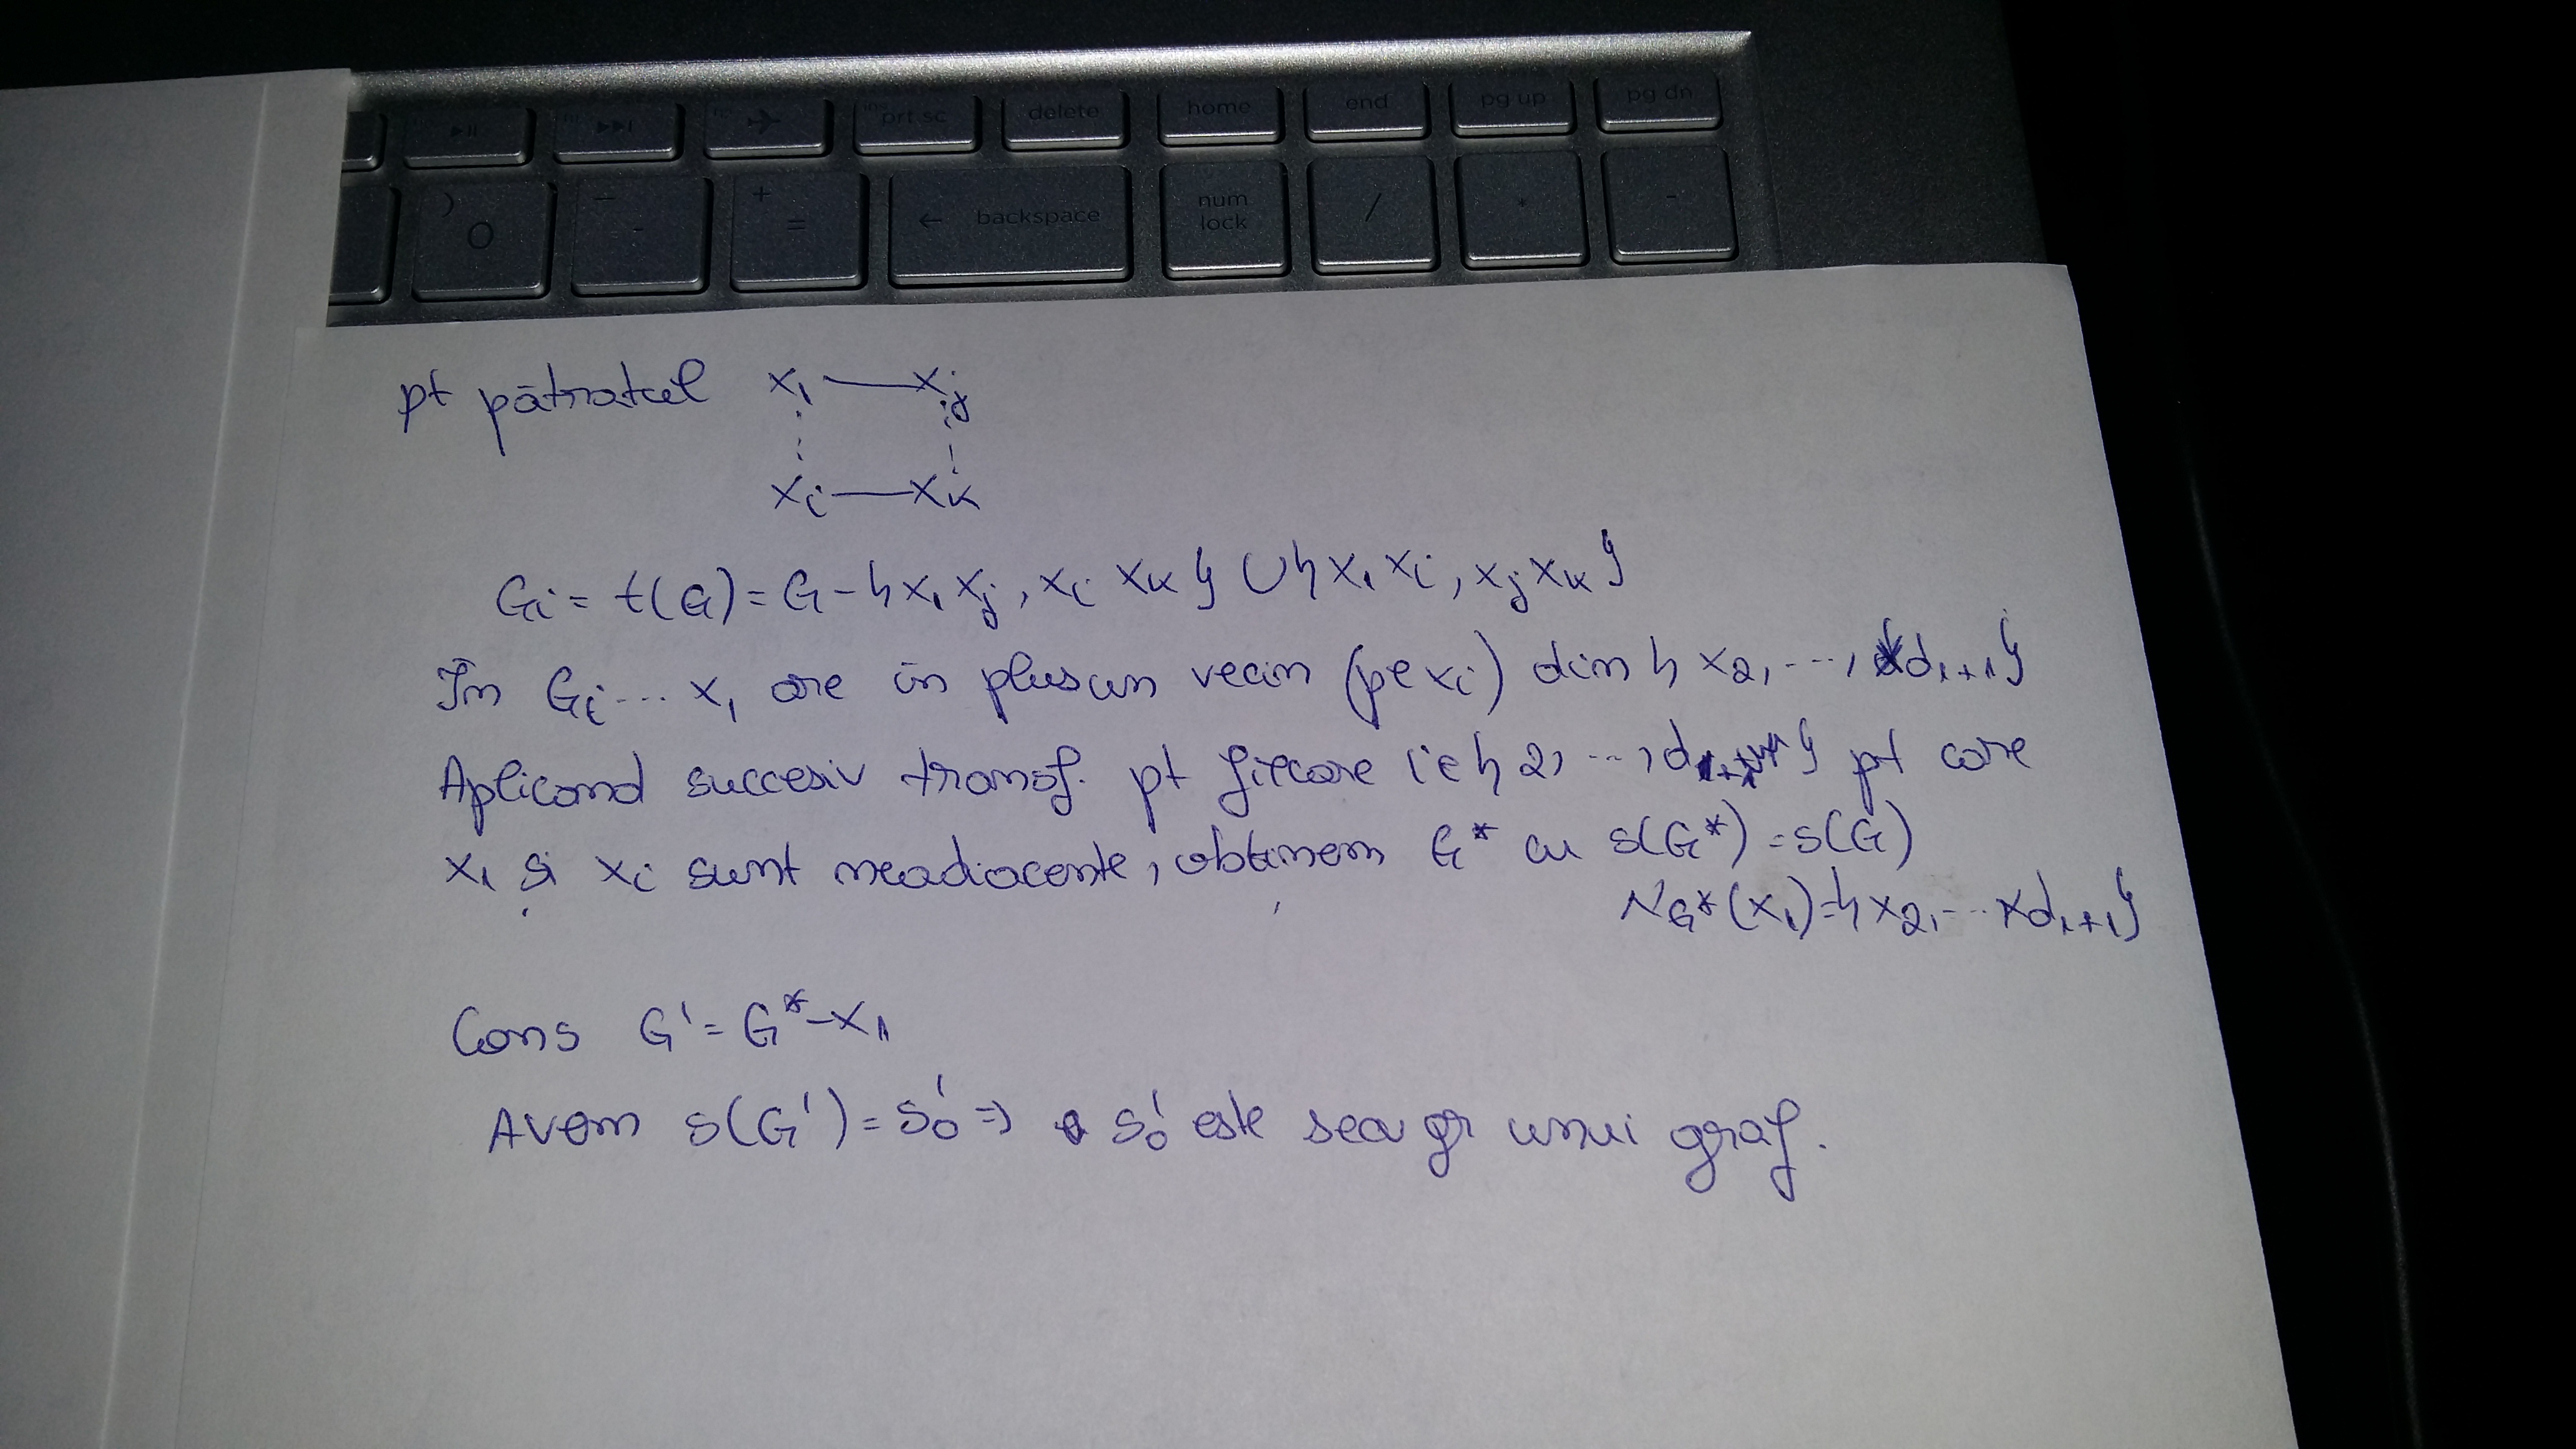 prt sc delete home end pg up pg dn
) 0 - + = ← backspace num lock / * -
pt pătratul x₁ — xⱼ
xᵢ — xₖ
Gᵢ = t(G) = G - {x₁xⱼ, xᵢ xₖ} ∪ {x₁xᵢ, xⱼxₖ}
În Gᵢ ... x₁ are în plus un vecin (pe xᵢ) din {x₂, ..., xd₁₊₁}
Aplicand succesiv transf. pt fiecare i∈{2, ..., d₁₊₁} pt care
x₁ și xᵢ sunt neadiacente, obținem G* cu s(G*) = s(G)
N_G*(x₁) = {x₂, ... xd₁₊₁}
Cons G' = G* - x₁
Avem s(G') = s₀' => s₀' este secv gr unui graf.